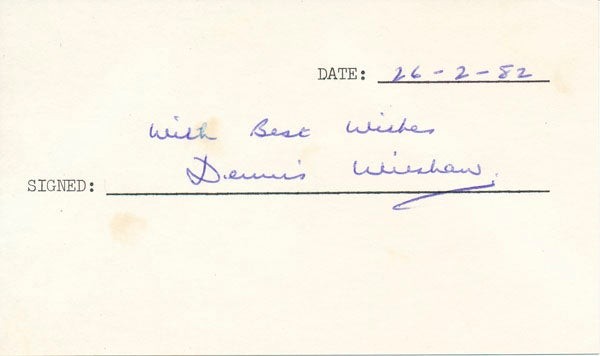 DATE: 26-2-82
With Best Wishes
SIGNED: Dennis Wilshaw.